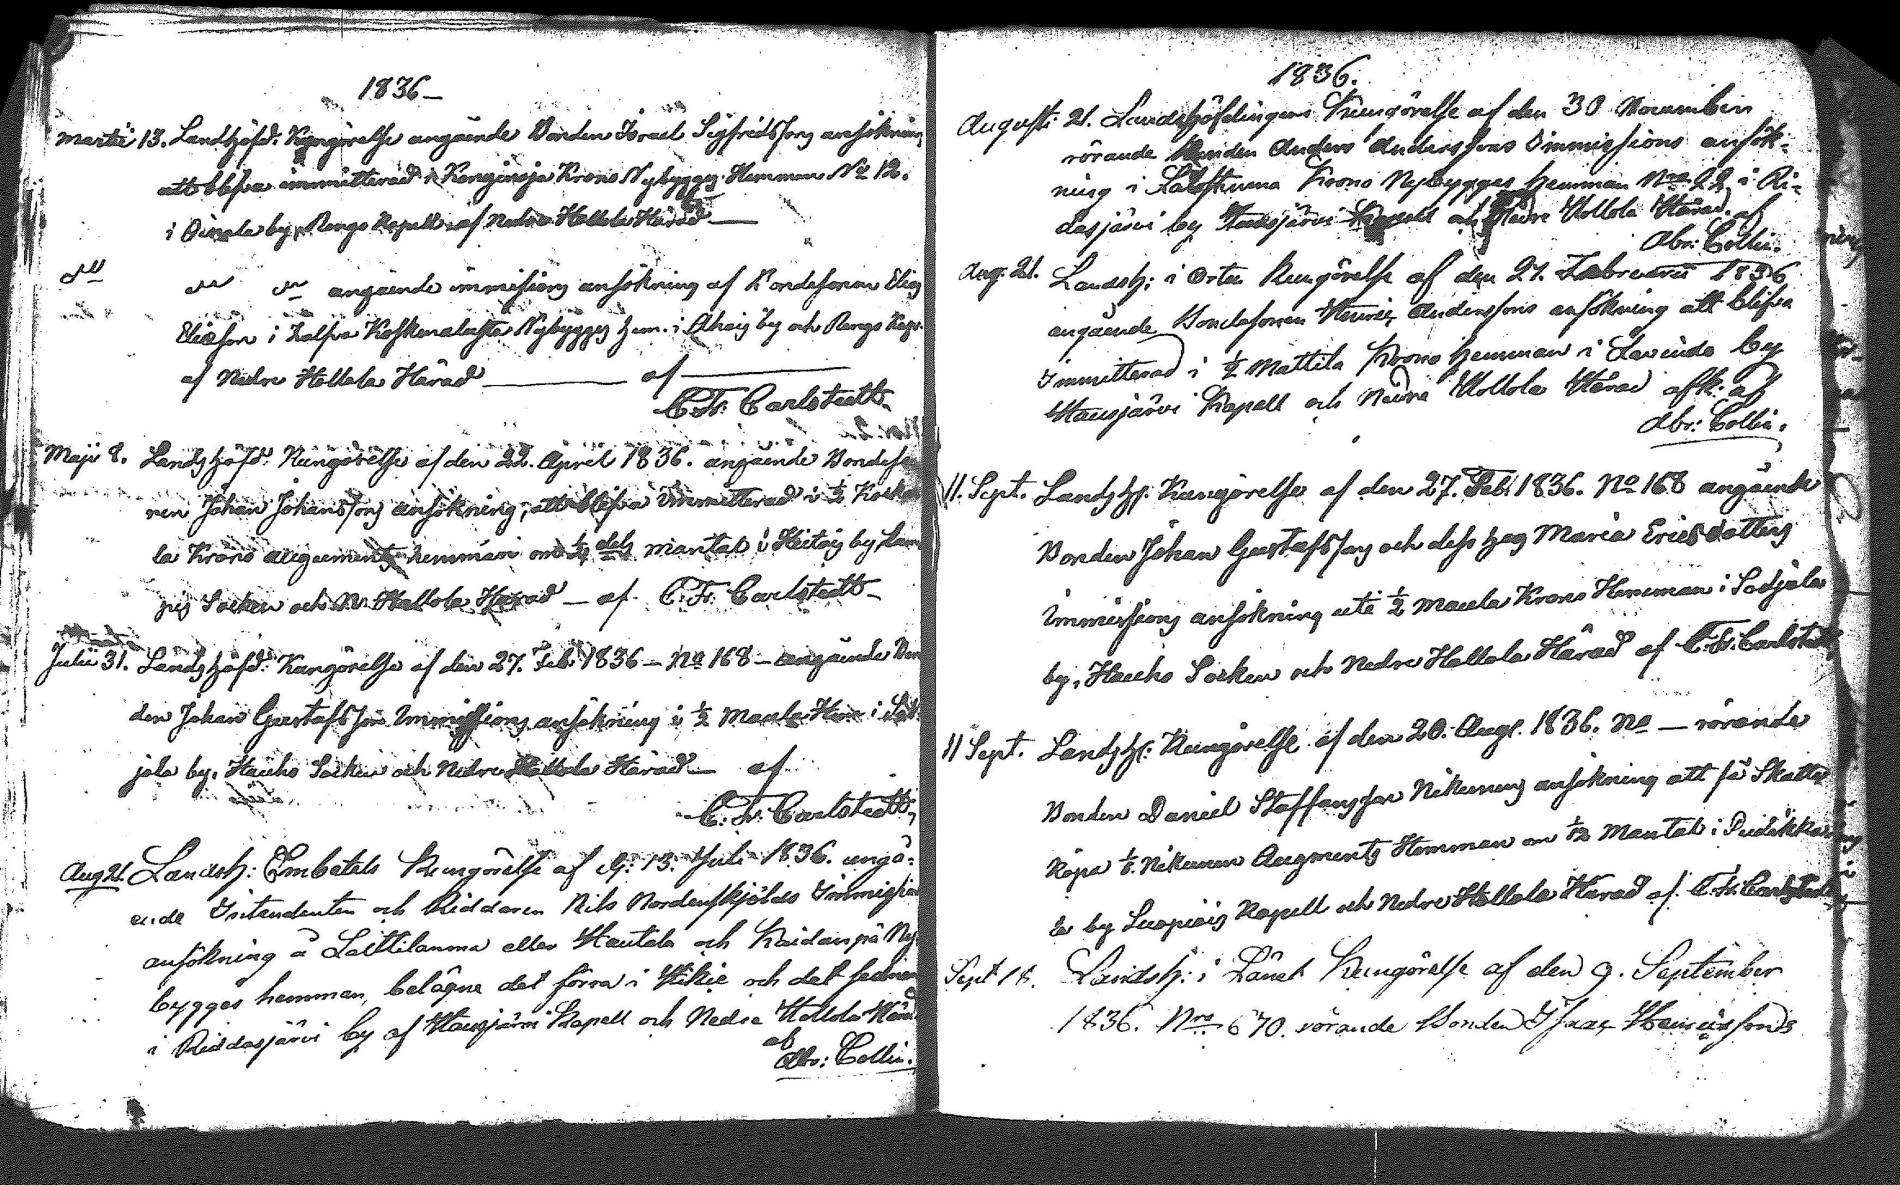 1836
Martii 13. Landshöfd: Kungörelse angående Bonden Israel Sigfridssons ansökning
att blifva immitterad i Krono Nybygges Hemman No 12.
i Oinala by, Rengo Kapell af Nedre Hollola Härad
dito angående immissions ansökning af Bondesonen Elias
Eliasson i halfva Koskenalusta Nybygges hem: i Ahois by och Rengo Kap:
af Nedre Hollola Härad af
C. Fr. Carlstedt
Maji 8. Landshöfd: Kungörelse af den 22. April 1836. angående Bondeso
nen Johan Johanssons ansökning, att blifva immitterad i ½
la Krono augments hemman om dels mantal i Heitois by, Lam
pis Socken och N. Hollola Härad – af C. Fr. Carlstedt
Julii 31. Landshöfd: Kungörelse af den 27. Feb. 1836 – No 168 – angående Bon
den Johan Gustafsson Immissions ansökning i ½ Maula Hem: i Sot
jala by, Hauho Socken och Nedre Hollola Härad – af
C. Fr. Carlstedt
Aug 21. Landsh: Embetets Kungörelse af d: 13. Juli 1836. angå-
ende Intendenten och Riddaren Nils Nordenskjölds Immissions
ansökning å Lettilamma eller Hautala och Kaidanpä Ny
bygges hemman, belägne det förra i Hikie och det sednare
i Riddasjärvi by af Hausjärvi Kapell och Nedre Hollola Härad
af
Abr: Collin.
1836.
Augusti 21. Landshöfdingens Kungörelse af den 30 November
rörande Bonden Anders Anderssons Immissions ansök-
ning i Krono Nybygges hemman Nro 22 i Ri-
dasjärvi by Hausjärvi Kapell och Nedre Hollola Härad. af
Abr: Collin.
Aug: 21. Landsh: i Orten Kungörelse af den 27. Februarii 1836
angående Bondesonen Henric Anderssons ansökning att blifva
Immitterad i ½ Mattila Krono hemman i Lavinda by
Hausjärvi Kapell och Nedre Hollola Härad afk: af
Abr: Collin.
11. Sept. Landshf: Kungörelse af den 27. Feb. 1836. No 168 angående
Bonden Johan Gustafssons och dess hus Maria Ericsdotters
immissions ansökning uti ½ Maula Krono Hemman i Sotjala
by, Hauho Socken och Nedre Hollola Härad af C. Fr. Carlstedt
11 Sept. Landshf: Kungörelse af den 20. Aug. 1836. No – rörande
Bonden Daniel Staffansson Nikunens ansökning att få Skatte
köpa Nikunen Augments Hemman om Mantal i
la by Luopiois Kapell och Nedre Hollola Härad af. C. Fr. Carlstedt
Sept 18. Landsh: i Länet Kungörelse af den 9. September
1836. Nro 670. rörande Bonden Isaac Henricssons